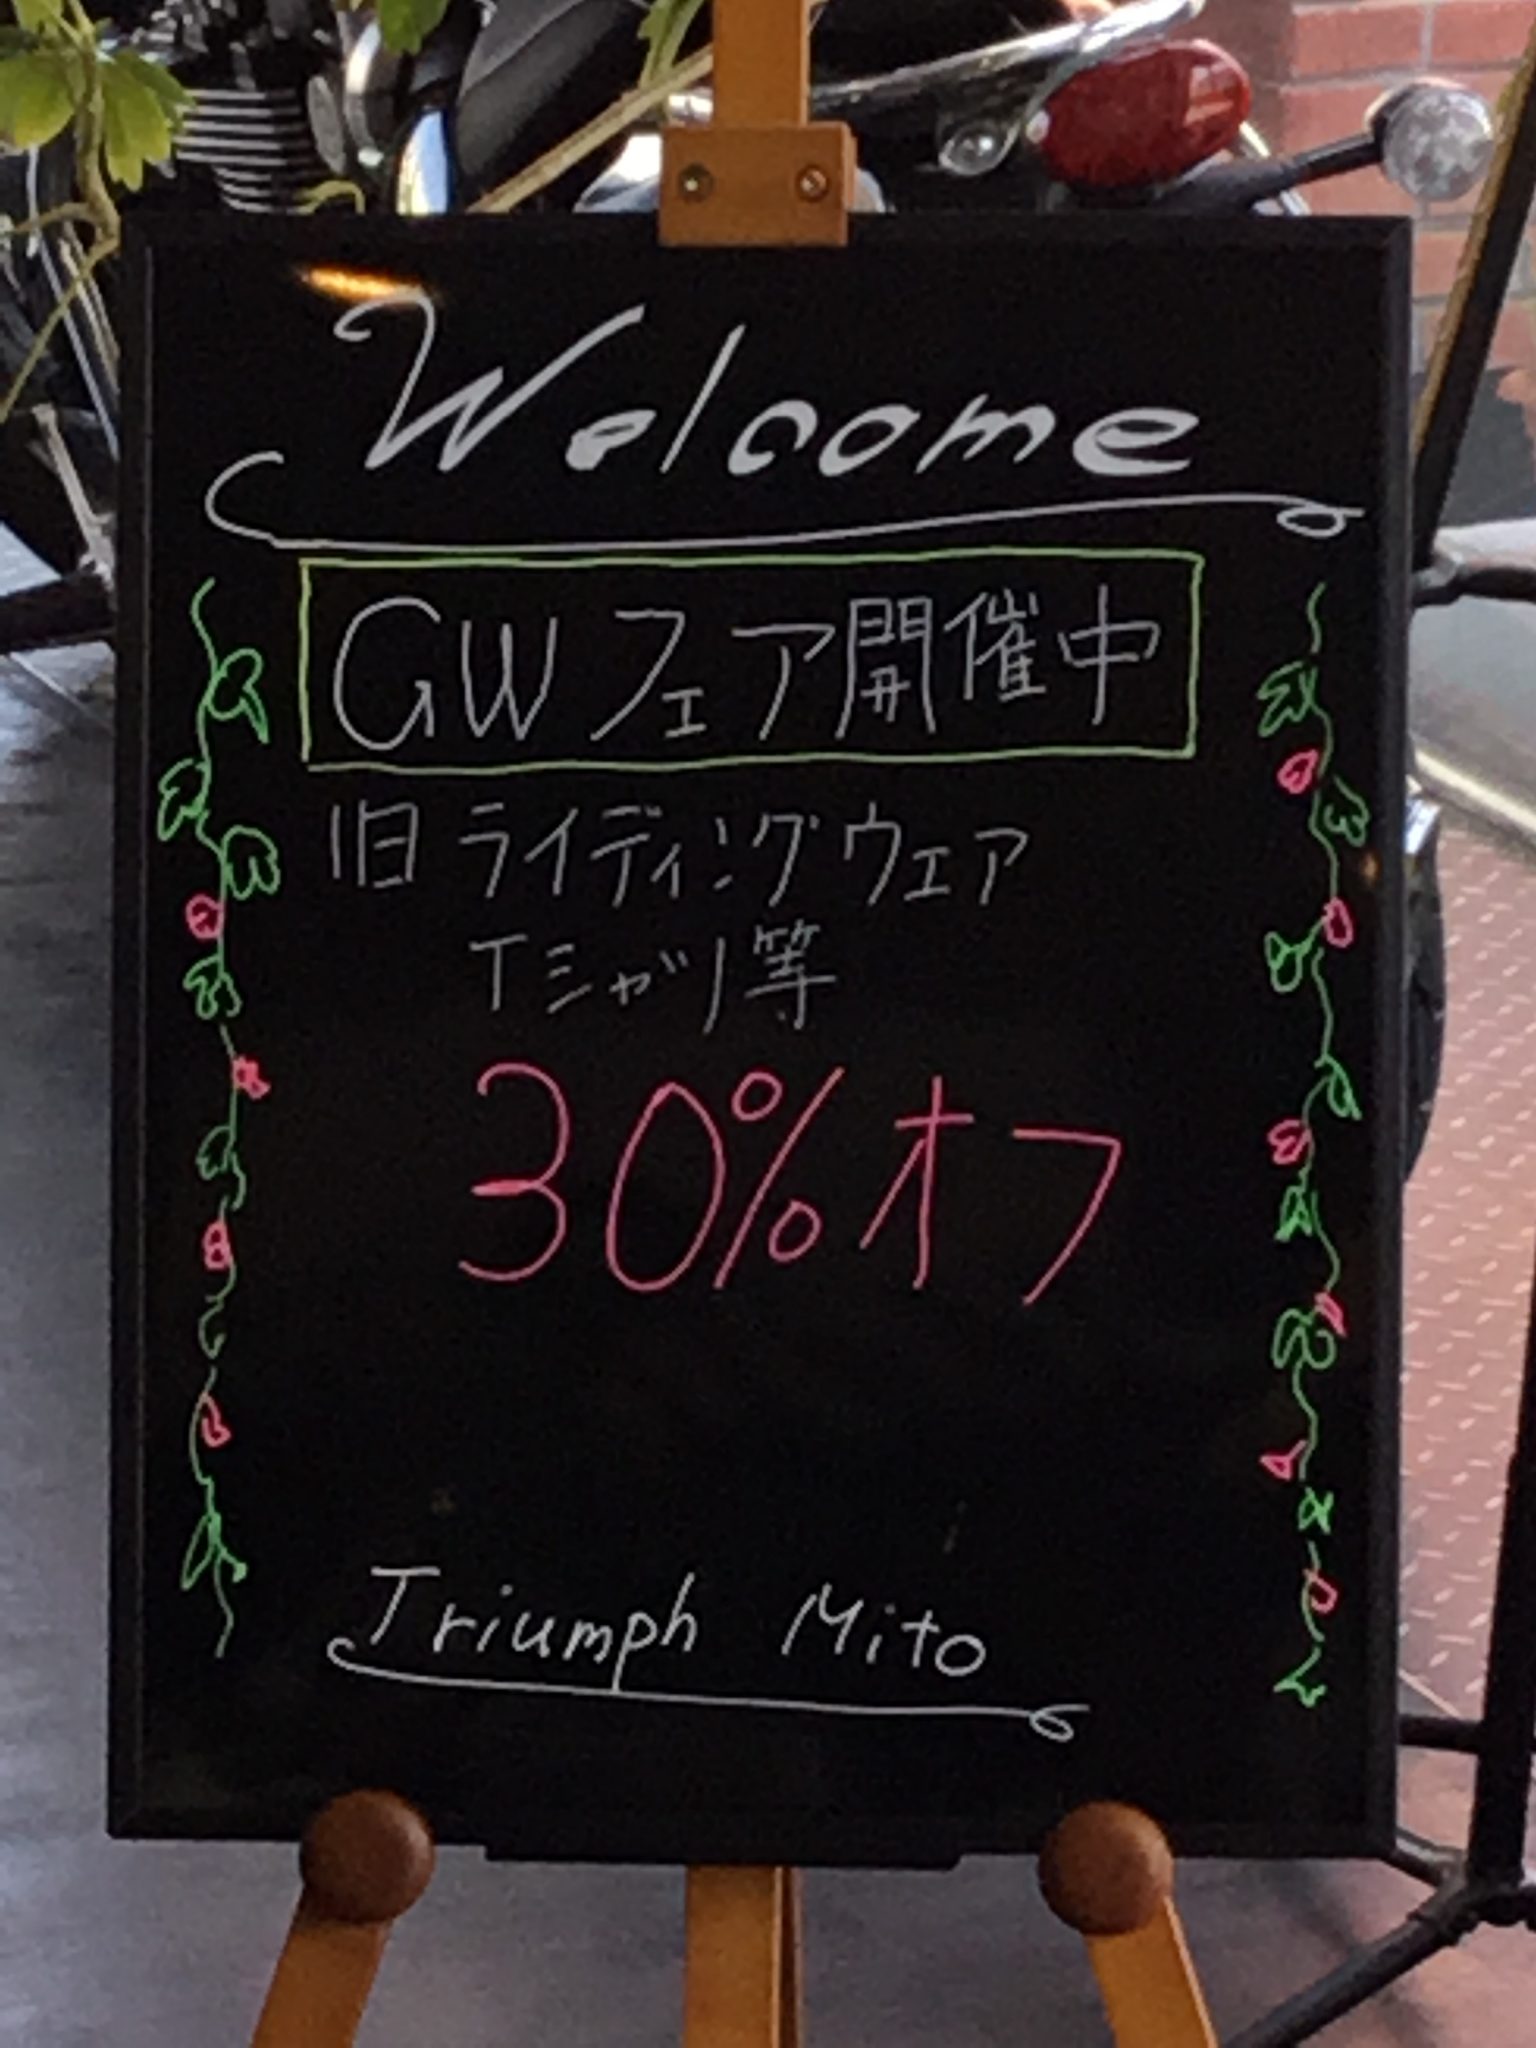 Welcome
GWフェア開催中
旧 ライディングウェア
Tシャツ等
30%オフ
Triumph Mito